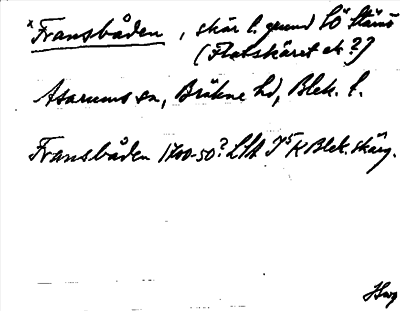 *Fransbåden, skär l. grund SÖ Stärnö
(Flatskäret ek?)
Asarums sn, Bräkne hd, Blek. l.
Fransbåden 1700-50? LSA J5 K Blek. skärg.